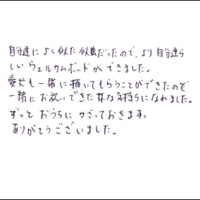 自分達によく似た似顔だったので、より自分達ら
しいウェルカムボードができました。
愛犬も一緒に描いてもらうことができたので
一緒にお祝いできた様な気持ちになれました。
ずっとおうちにかざっておきます。
ありがとうございました。